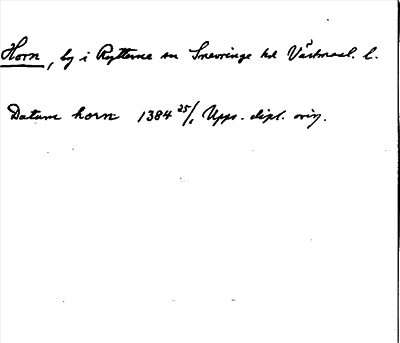 Horn, by i Rytterne sn Snevringe hd Västmanl. l.
Datum horn 1384 25/1 Upps. dipl. orig.